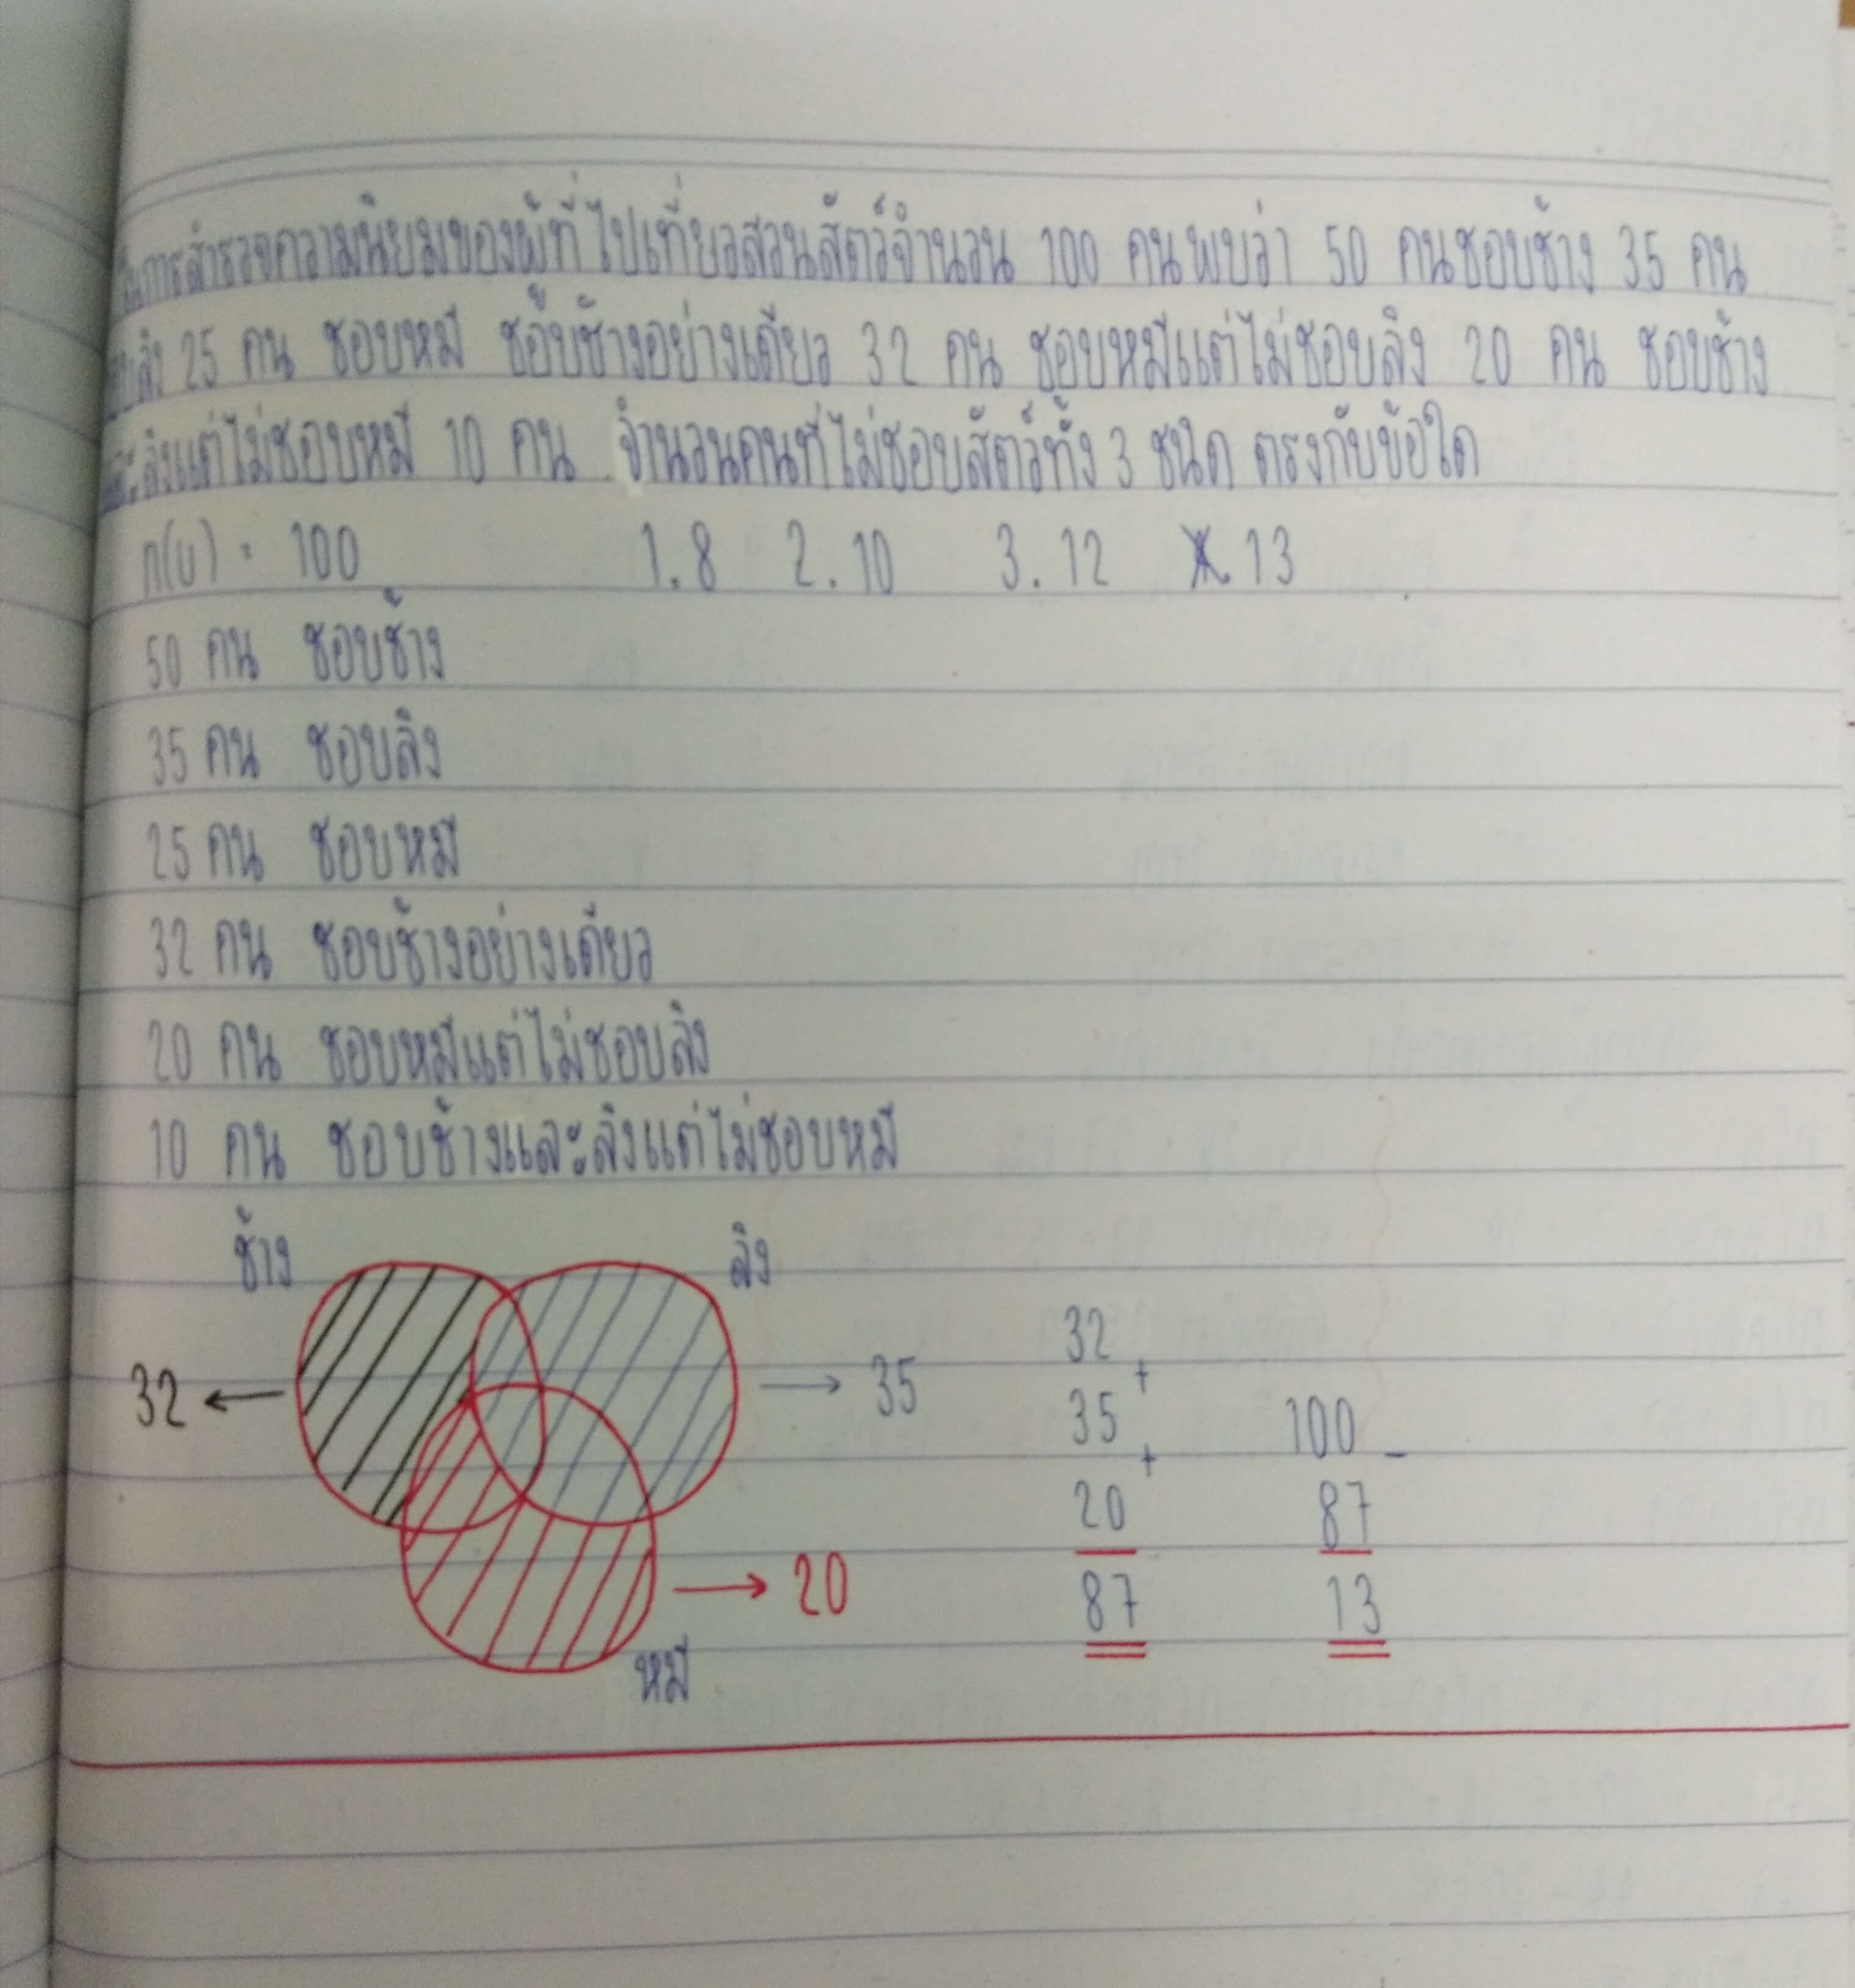 ในการสำรวจความนิยมของผู้ที่ไปเที่ยวสวนสัตว์จำนวน 100 คนพบว่า 50 คนชอบช้าง 35 คน
ชอบลิง 25 คน ชอบหมี ชอบช้างอย่างเดียว 32 คน ชอบหมีแต่ไม่ชอบลิง 20 คน ชอบช้าง
และลิงแต่ไม่ชอบหมี 10 คน จำนวนคนที่ไม่ชอบสัตว์ทั้ง 3 ชนิด ตรงกับข้อใด
n(U) = 100 1. 8 2. 10 3. 12 4. 13
50 คน ชอบช้าง
35 คน ชอบลิง
25 คน ชอบหมี
32 คน ชอบช้างอย่างเดียว
20 คน ชอบหมีแต่ไม่ชอบลิง
10 คน ชอบช้างและลิงแต่ไม่ชอบหมี
ช้าง ลิง
32 ← → 35
→ 20
หมี
32 +
35 +
20
87
100 -
87
13